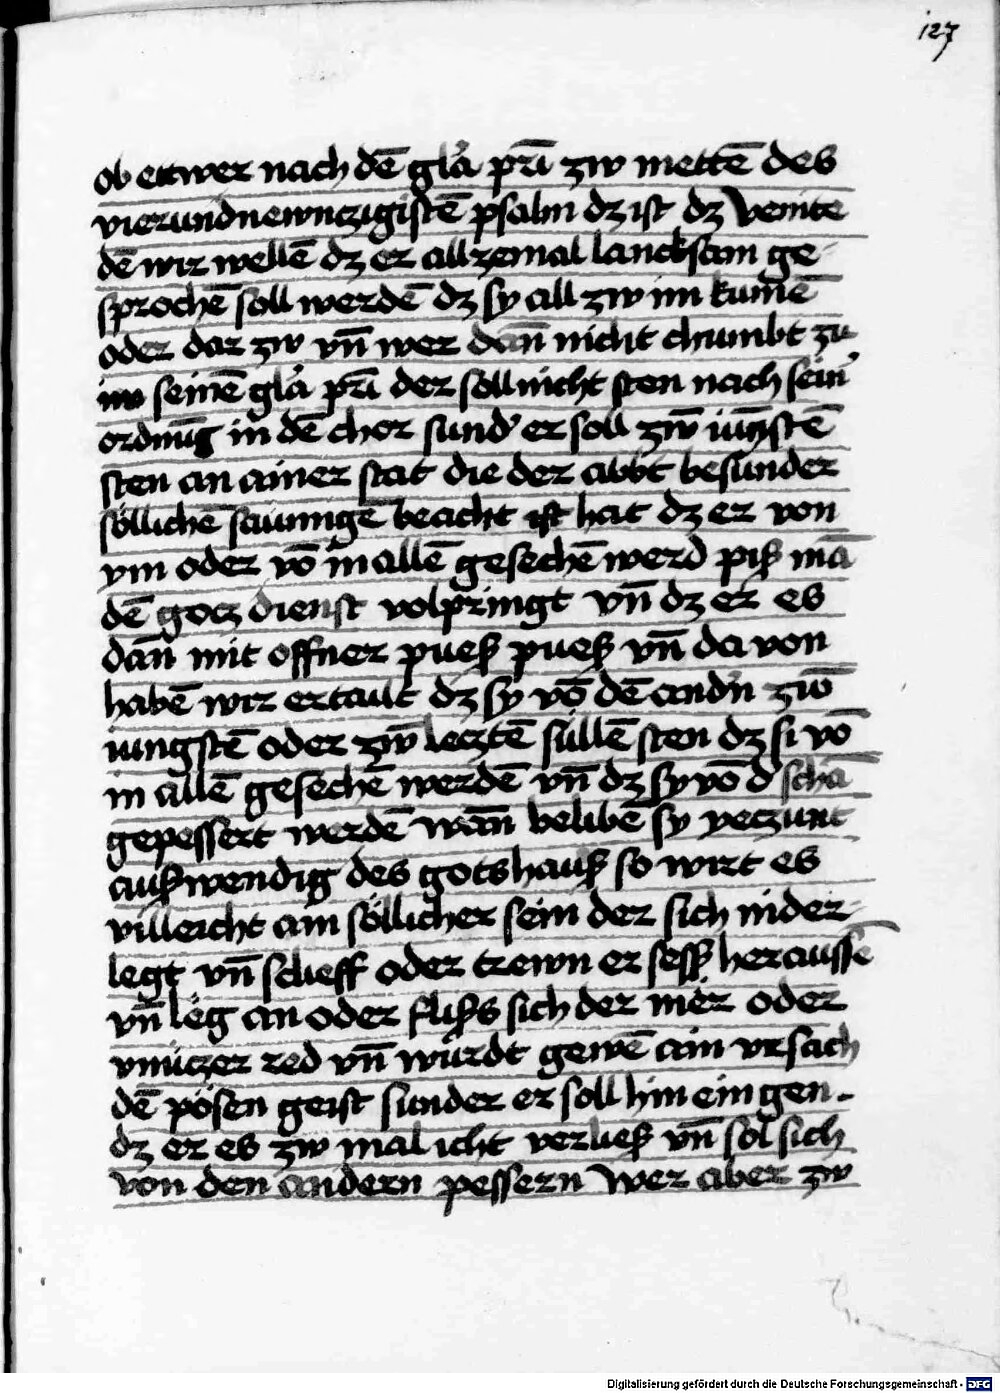 127
ob ettwer nach dē glā prī zw mettē des
vierundnewnczigistē psalm dz ist dz Venite
dē wir wellē dz er all zemal lancksam ge-
sprochē soll werdē dz sy all zw im kumē
oder dar zw vn̄ wer dan̄ nicht chumbt zu
im seinē glā prī der soll nicht sten nach sein̄
ordnūg in dē chor sund' er soll zw̄ iūgstē
sten an ainer stat die der abbt besunder
söllichē saumigē beacht ist hat dz er von
ym oder vō in allē gesechē werd piß mā
dē gocz dienst volpringt vn̄ dz er es
dan̄ mit offner pueß pueß vn̄ da von
habē wir ertailt dz sy vō dē and'n zwō
iungstē oder zw̄ lecztē süllē sten dz si vō
in allē gesechē werdē vn̄ dz sy vō d' schā
gepessert werdē wan̄ belibē sy yeczunt
außwendig des gotshauß so wirt es
villeicht ain söllicher sein der sich nider
legt vn̄ schieff oder trewn er seß heraussē
vn̄ leg an oder flißs sich der mër oder
vnüczer red vn̄ würdt gewē ain vrsach
dē pösen geist sunder er soll hin ein gen.
dz er es zw mal icht verließ vn̄ sol sich
von den andern pessern Wer aber zw
Digitalisierung gefördert durch die Deutsche Forschungsgemeinschaft - DFG